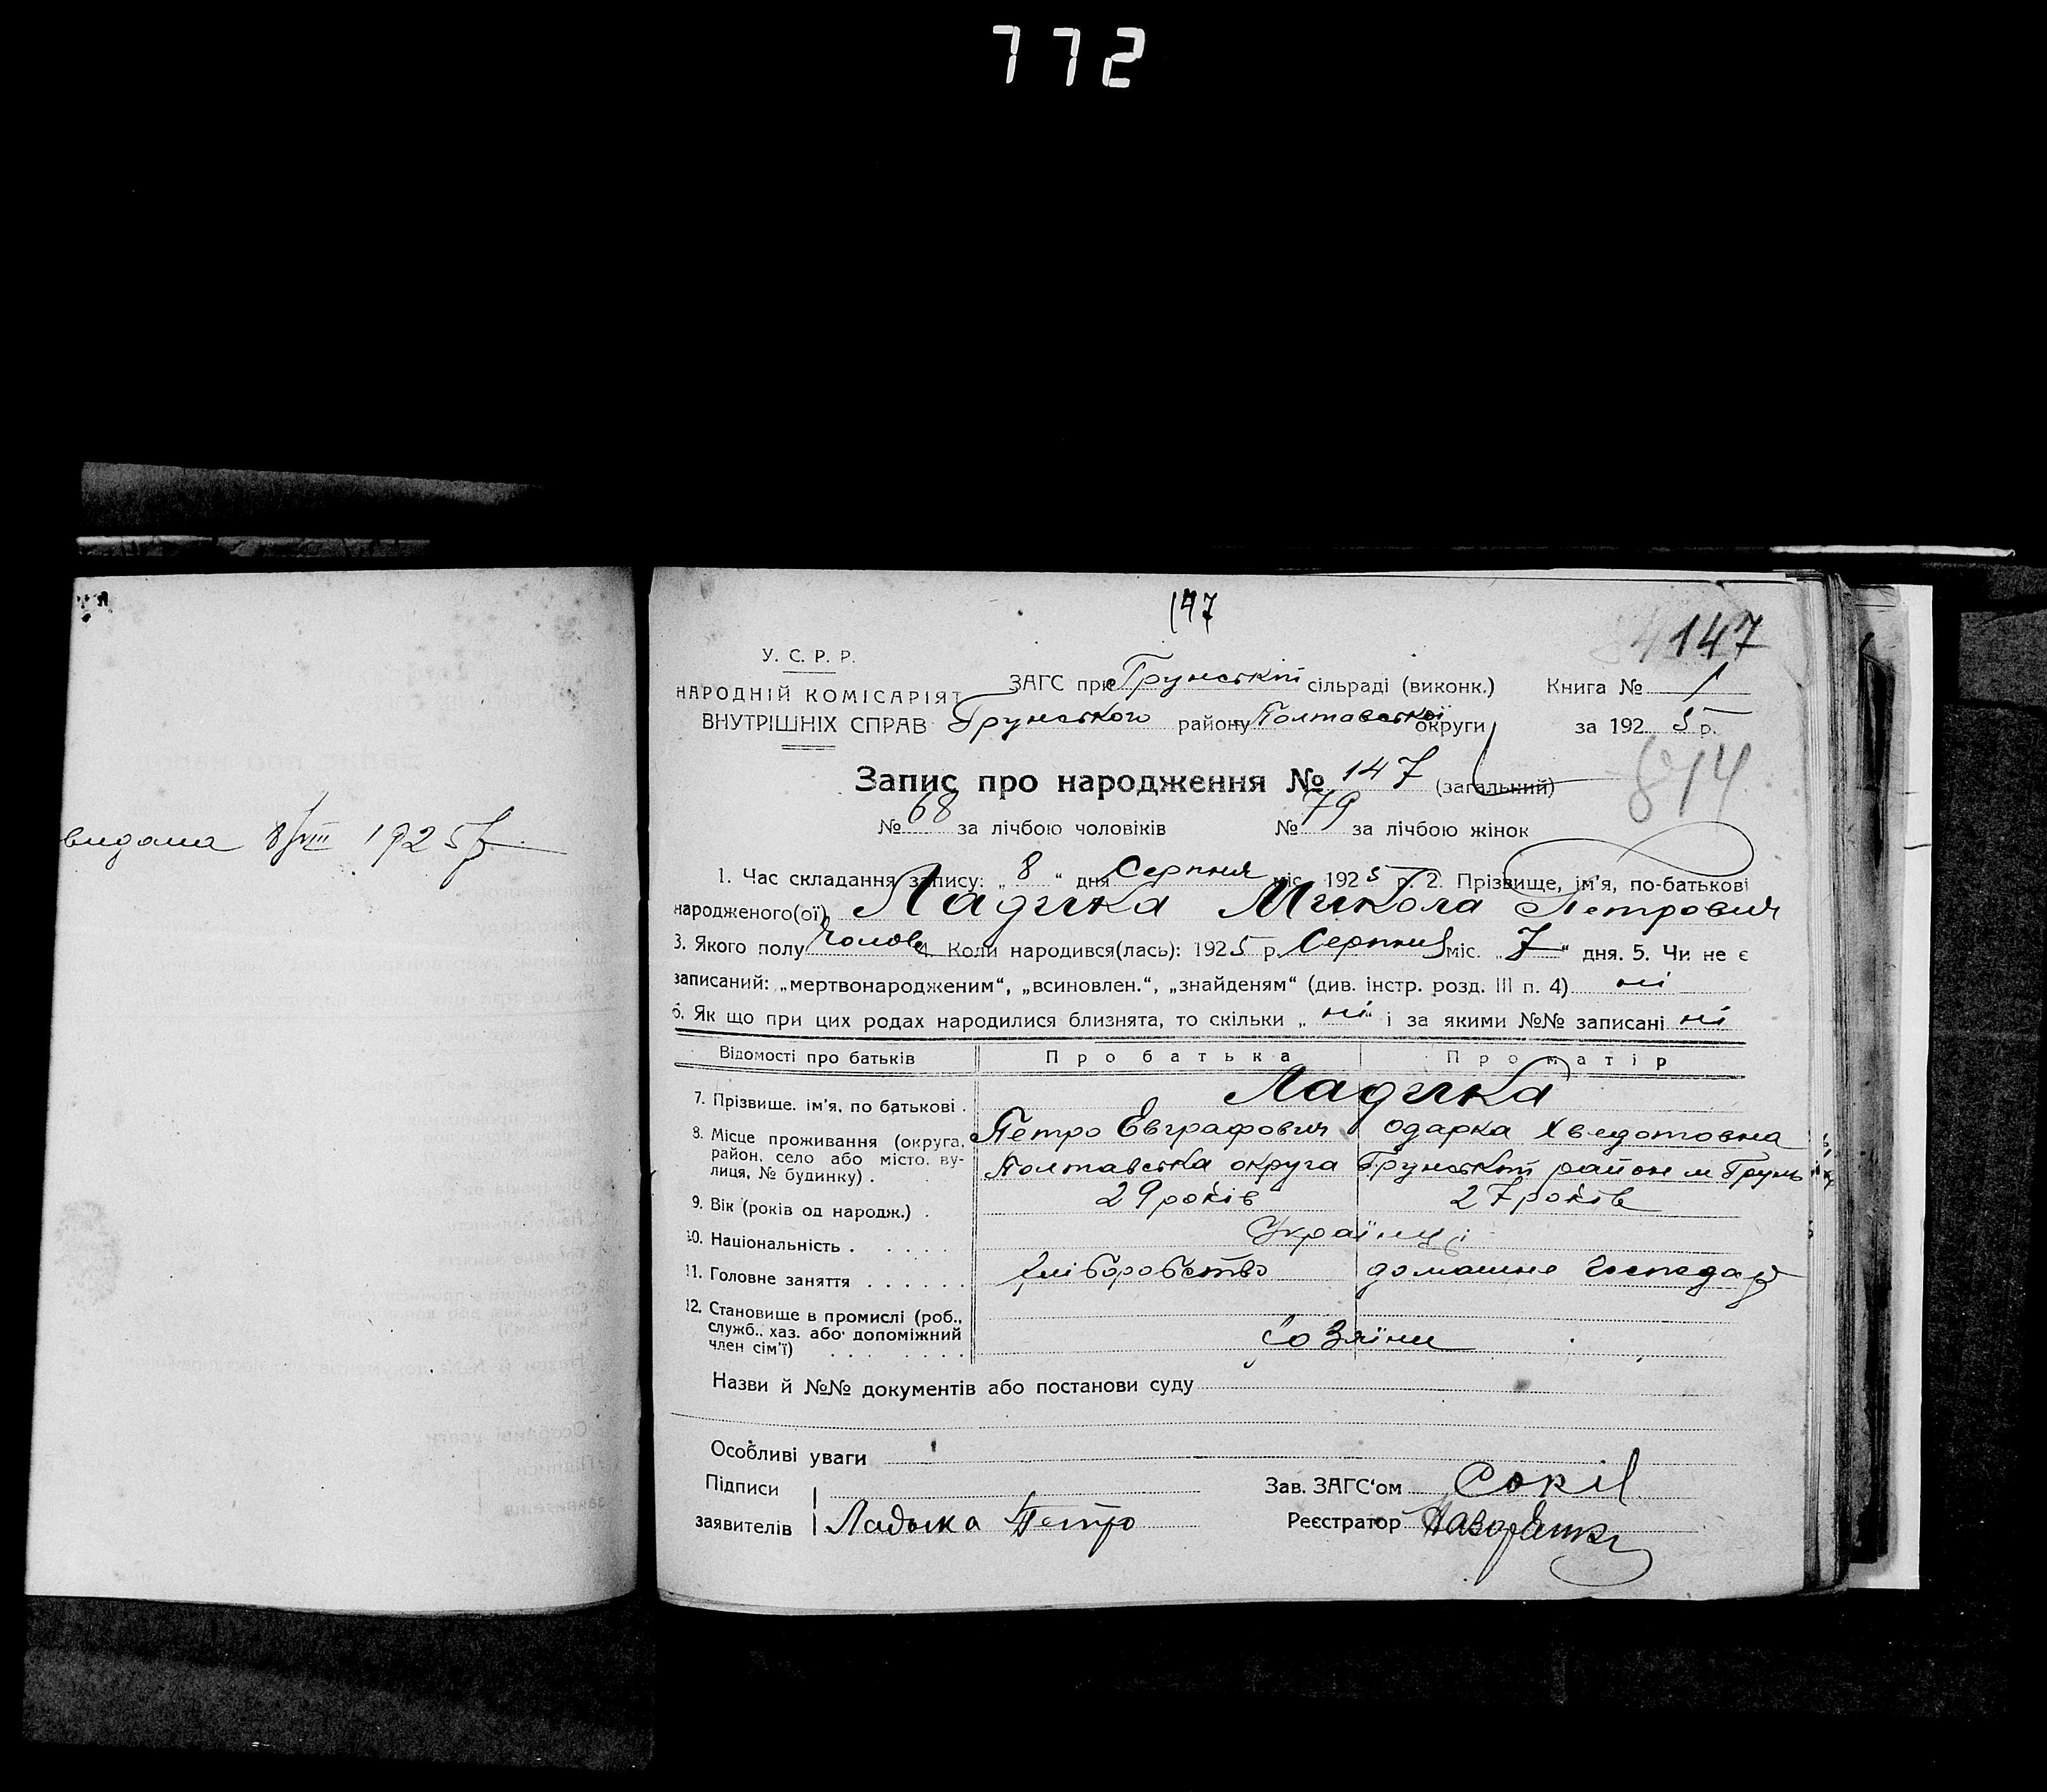 772
видана 8/VIII 1925 р.
147
147
У. С. Р. Р.
НАРОДНІЙ КОМІСАРІЯТ
ВНУТРІШНІХ СПРАВ
ЗАГС при Грунській сільраді (виконк.) Книга № 1
Грунського району Полтавської округи за 1925 р.
814
Запис про народження № 147 (загальний)
№ 68 за лічбою чоловіків № 79 за лічбою жінок
1. Час складання запису: „8“ дня Серпня міс. 1925 р. 2. Прізвище, ім'я, по-батькові
народженого(ої) Ладика Микола Петрович
3. Якого полу Чолов 4. Коли народився(лась): 1925 р. Серпня міс. „7“ дня. 5. Чи не є
записаний: „мертвонародженим“, „всиновлен.“, „знайденям“ (див. інстр. розд. III п. 4) ні
6. Як що при цих родах народилися близнята, то скільки „ні“ і за якими №№ записані ні
Відомості про батьків Про батька Про матір
7. Прізвище. ім'я, по батькові . Ладика
Петро Евграфович Одарка Хведотовна
8. Місце проживання (округа, район, село або місто, ву-
лиця, № будинку) . Полтавська округа Грунський район м Грунь
9. Вік (років од народж.) . 29 років 27 років
10. Національність . . . . . Українці
11. Головне заняття . . . . . . хліборобство домашнє господар
12. Становище в промислі (роб.,
служб., хаз. або допоміжний
член сім'ї) . . . . . . .
Назви й №№ документів або постанови суду
Особливі уваги
Підписи Зав. ЗАГС'ом Сокіл
заявителів Ладыка Петро Реєстратор